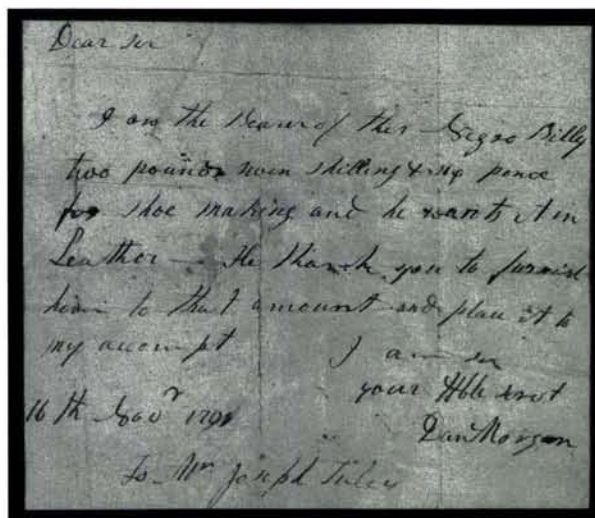 Dear sir
I ow the Bearer of this Negro Billy
two pounds nven shilling & six pence
for shoe making and he wants it in
Leather — Ile thank you to furnish
him to that amount and place it to
my accompt I am sir
your Hble servt
16th Novr 179
Dan Morgan
To Mr Joseph